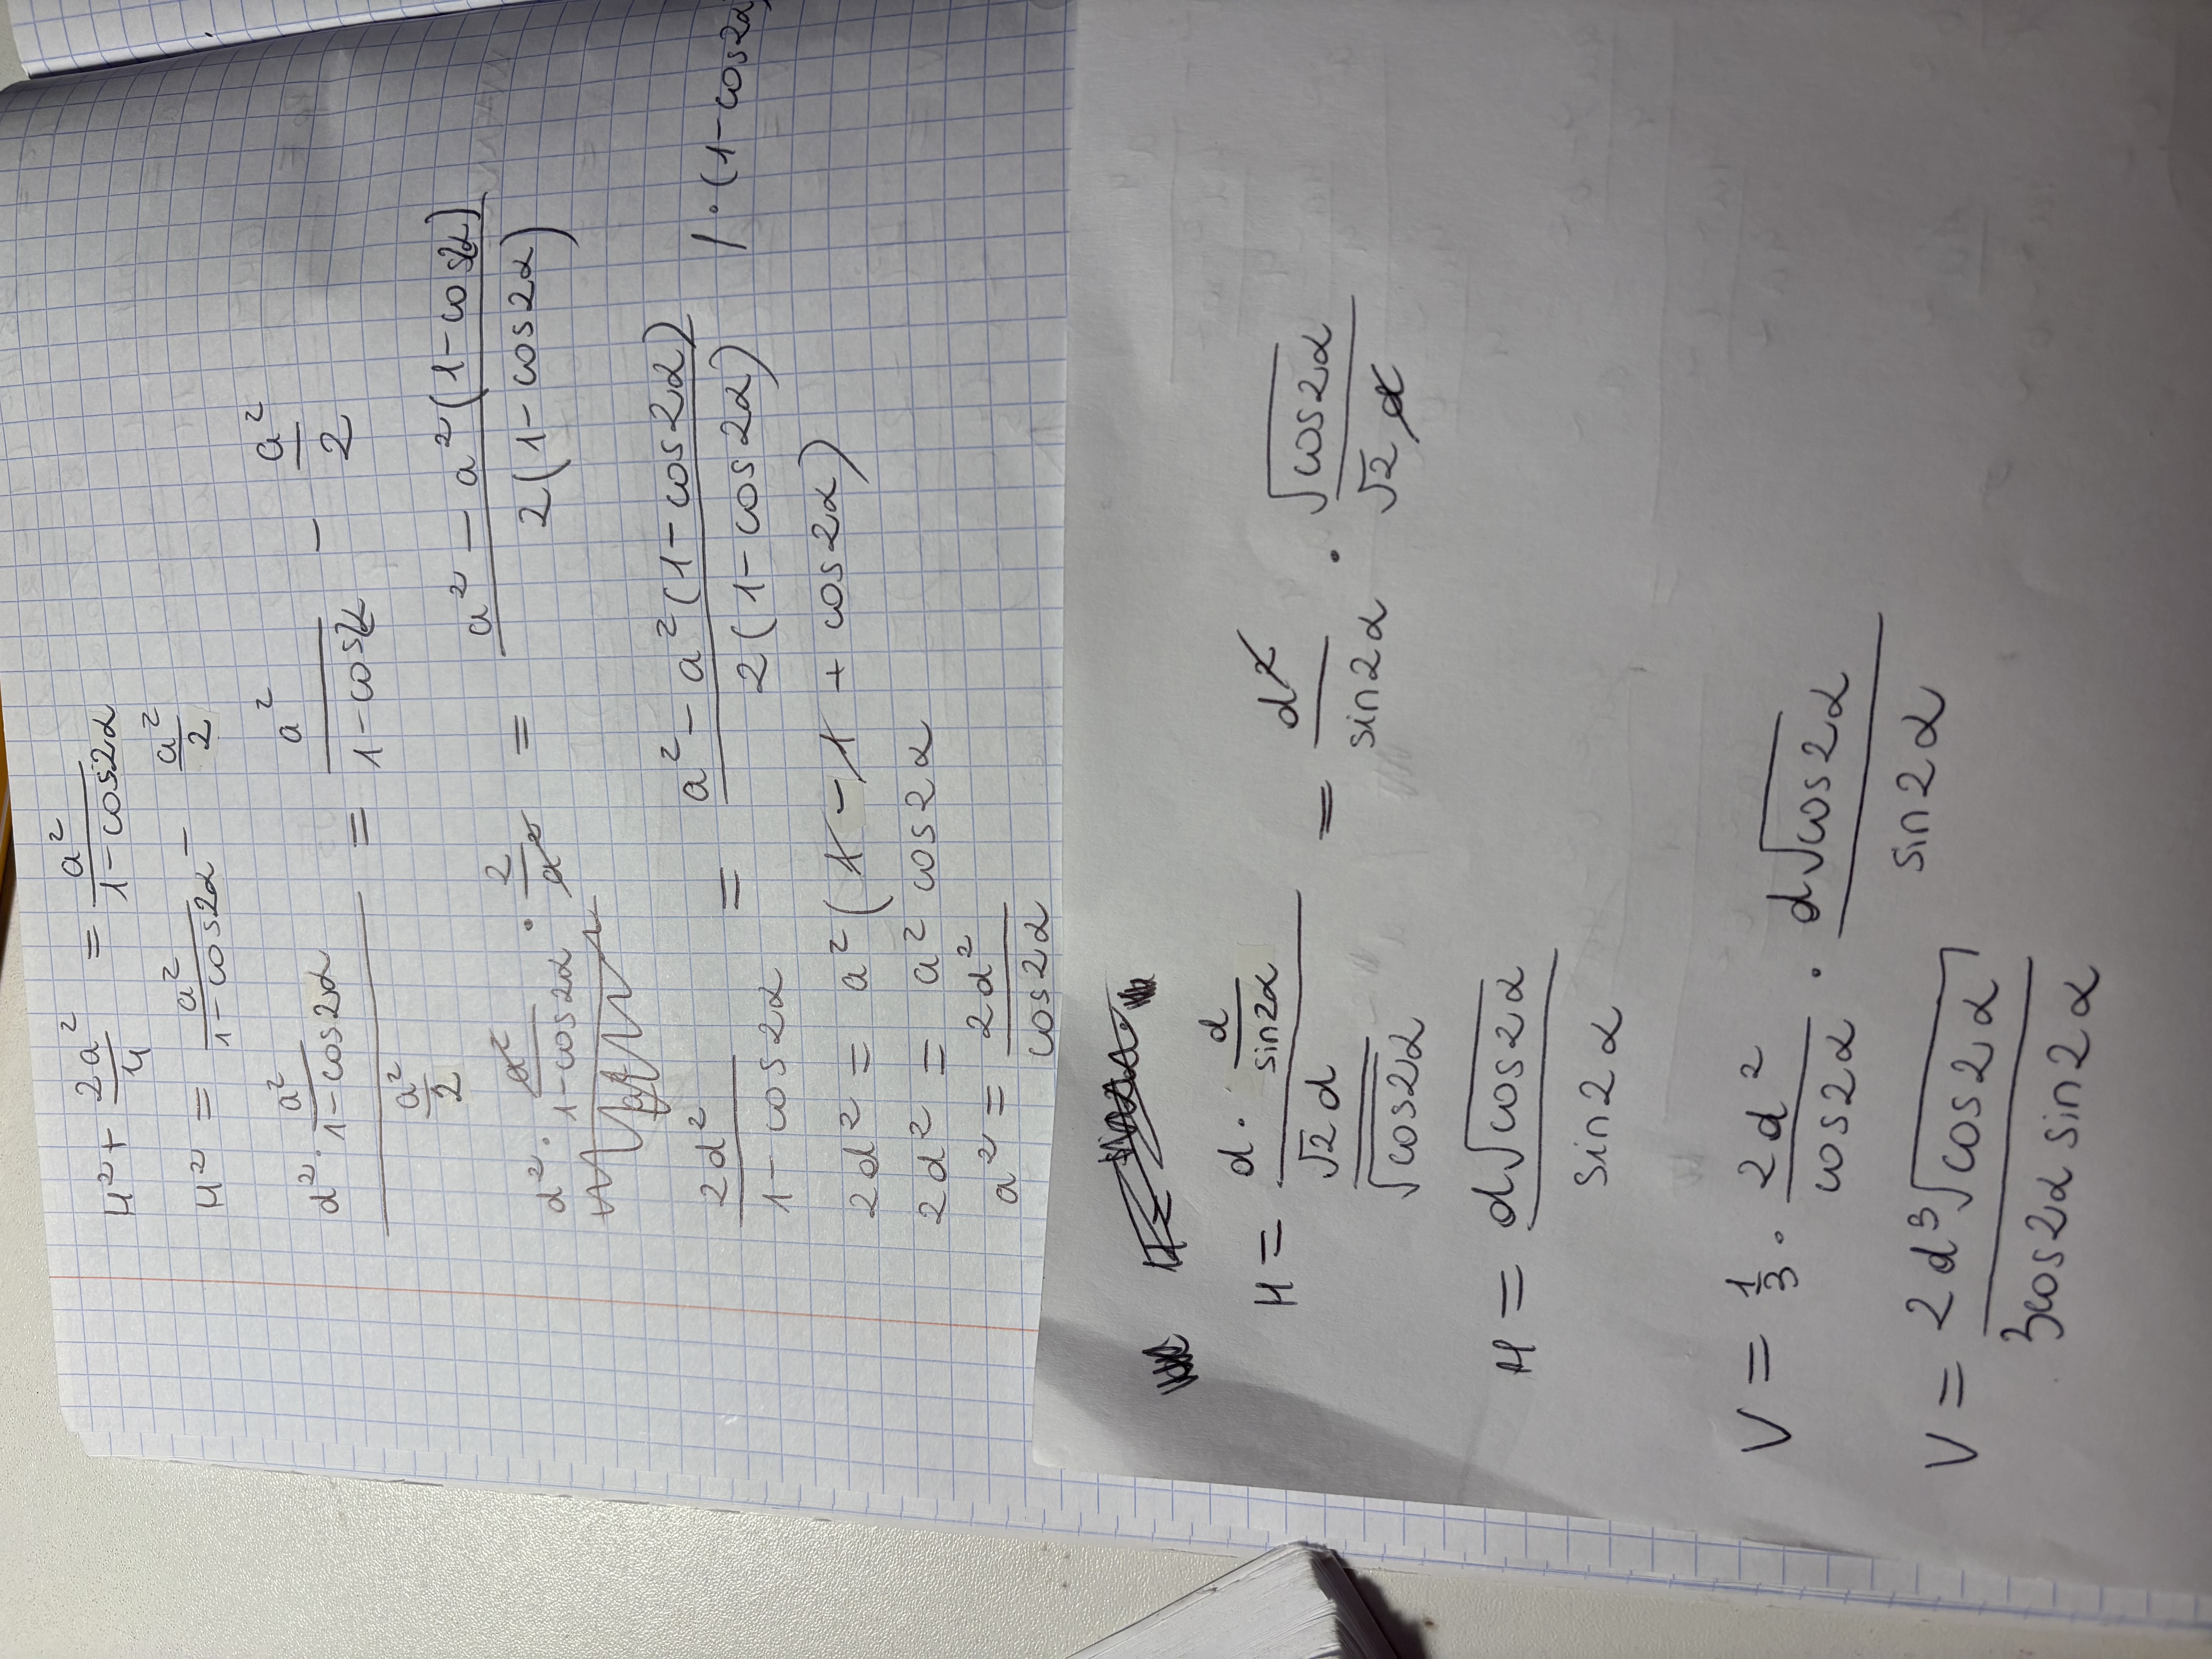 H² + 2a²/4 = a²/(1-cos2α)
H² = a²/(1-cos2α) - a²/2
(d² · a²/(1-cos2α))/(a²/2) = a²/(1-cos2α) - a²/2
d² · a²/(1-cos2α) · 2/a² = (a² - a²(1-cos2α))/(2(1-cos2α))
2d²/(1-cos2α) = (a² - a²(1-cos2α))/(2(1-cos2α)) / · (1-cos2α)
2d² = a²(1 - 1 + cos2α)
2d² = a² cos2α
a² = 2d²/cos2α
H = (d · d/sin2α)/(√2d/√cos2α) = d²/sin2α · √cos2α/(√2d)
H = d√cos2α/sin2α
V = 1/3 · 2d²/cos2α · d√cos2α/sin2α
V = 2d³√cos2α/(3cos2α sin2α)